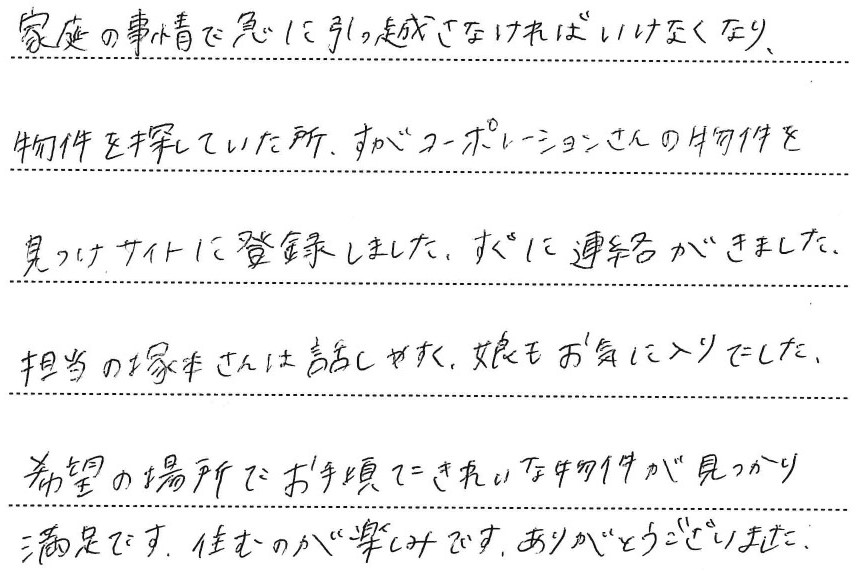 家庭の事情で急に引っ越さなければいけなくなり、
物件を探していた所、すがコーポレーションさんの物件を
見つけサイトに登録しました。すぐに連絡がきました。
担当の塚本さんは話しやすく、娘もお気に入りでした。
希望の場所でお手頃できれいな物件が見つかり
満足です。住むのが楽しみです。ありがとうございました。